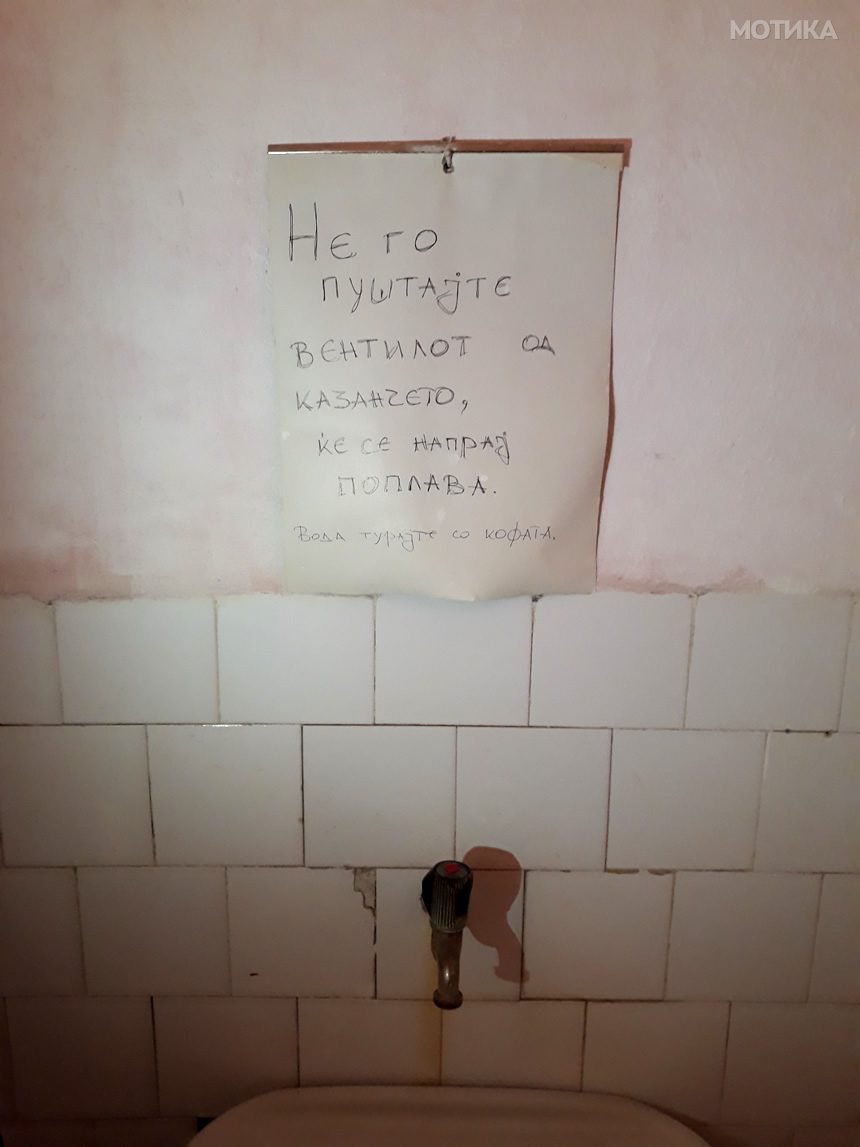 МОТИКА
Не го
пуштајте
вентилот од
казанчето,
ќе се напрај
поплава.
Вода турајте со кофата.